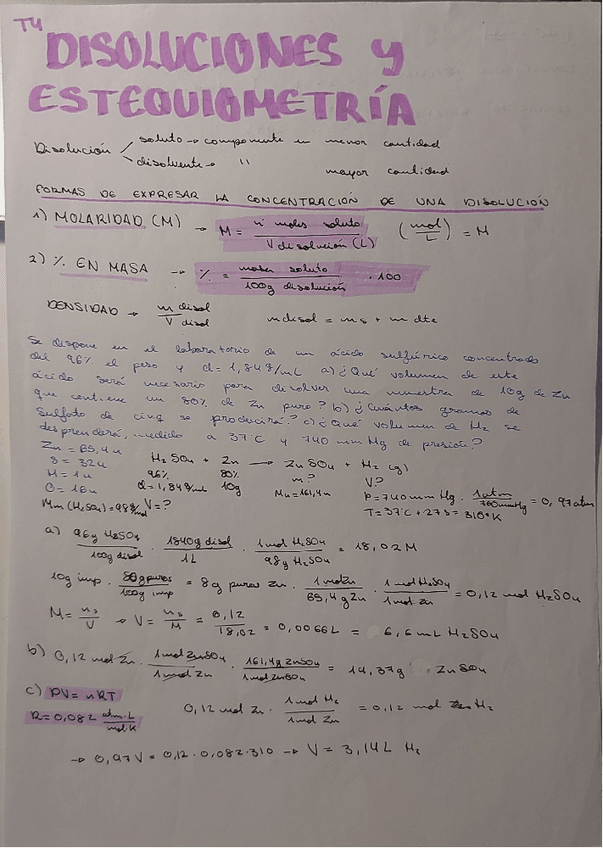 T4
DISOLUCIONES y
ESTEQUIOMETRÍA
Disolución soluto → componente en menor cantidad
disolvente → " mayor cantidad
FORMAS DE EXPRESAR LA CONCENTRACIÓN DE UNA DISOLUCIÓN
1) MOLARIDAD (M) → M = nº moles soluto / V disolución (L) (mol/L) = M
2) % EN MASA → % = masa soluto / 100g disolución · 100
DENSIDAD → m disol / V disol m disol = ms + m dte
Se dispone en el laboratorio de un ácido sulfúrico concentrado
del 96% el peso y d = 1,84 g/mL a) ¿Qué volumen de este
ácido será necesario para disolver una muestra de 10g de Zn
que contiene un 80% de Zn puro? b) ¿Cuántos gramos de
sulfato de cinq se producirá? c) ¿Qué volumen de H₂ se
desprenderá, medido a 37°C y 740 mmHg de presión?
Zn = 65,4u H₂SO₄ + Zn → ZnSO₄ + H₂ (g)
S = 32u 96% 80% m? V?
H = 1u d = 1,84 g/mL 10g Mm = 161,4u P = 740 mmHg · 1atm / 760mmHg = 0,97atm
O = 16u V = ? T = 37°C + 273 = 310°K
Mm (H₂SO₄) = 98 g/mol
a) 96g H₂SO₄ / 100g disol · 1840g disol / 1L · 1mol H₂SO₄ / 98g H₂SO₄ = 18,02M
10g imp · 80g puros / 100g imp = 8g puros Zn · 1molZn / 65,4gZn · 1molH₂SO₄ / 1molZn = 0,12 mol H₂SO₄
M = ns / V → V = ns / M = 0,12 / 18,02 = 0,0066L = 6,6mL H₂SO₄
b) 0,12 mol Zn · 1molZnSO₄ / 1molZn · 161,4gZnSO₄ / 1molZnSO₄ = 19,37g ZnSO₄
c) PV = nRT
R = 0,082 atm·L / mol·K 0,12 mol Zn · 1mol H₂ / 1mol Zn = 0,12 mol H₂
→ 0,97V = 0,12 · 0,082 · 310 → V = 3,14L H₂